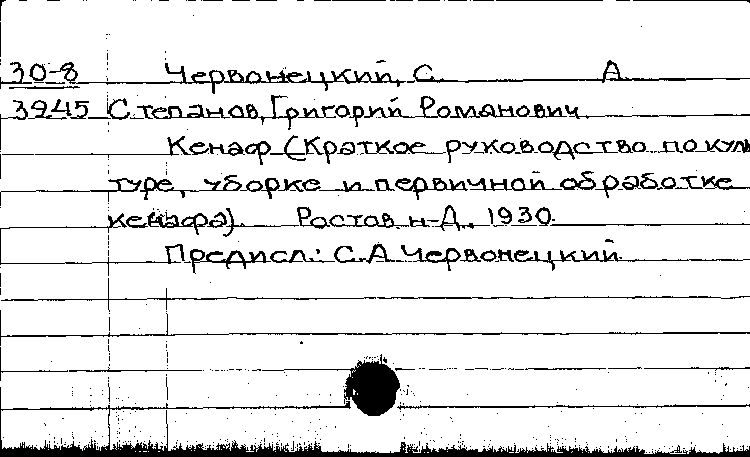 30-8 Червонецкий, С. А
3945 Степанов, Григорий Романович
Кенаф (Краткое руководство по куль
туре, уборке и первичной обработке
кенафа). Ростов н-Д., 1930.
Предисл.: С.А Червонецкий